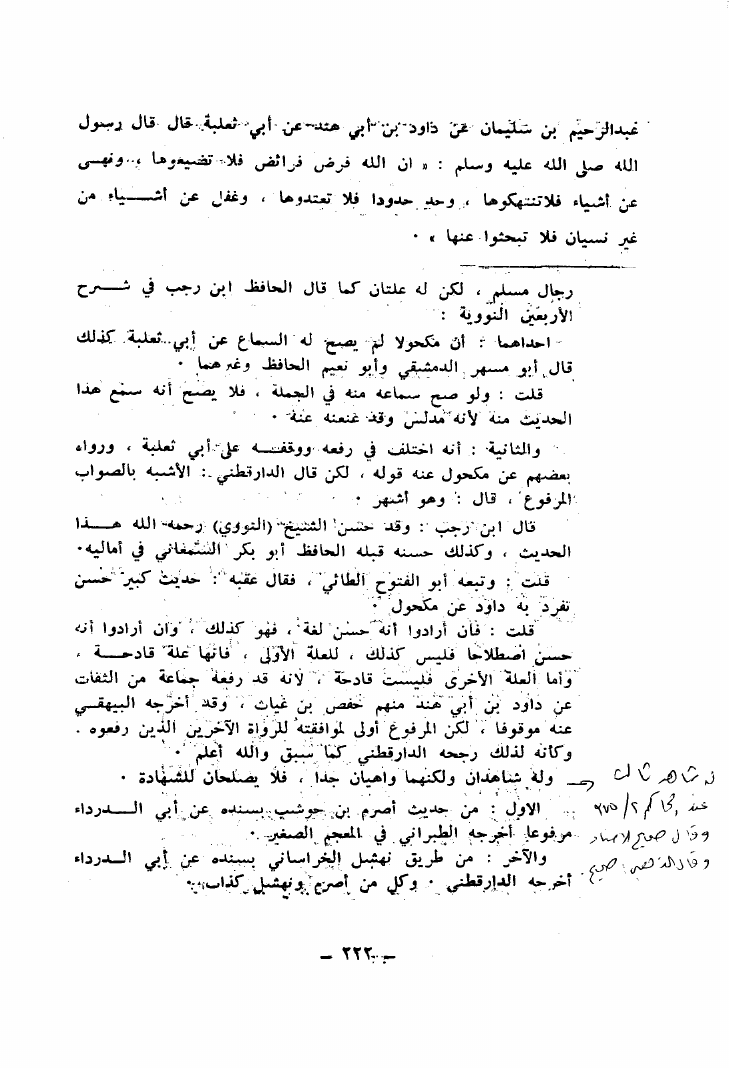 عبدالرحيم بن سليمان عن داود بن أبي هند عن أبي ثعلبة قال قال رسول
الله صلى الله عليه وسلم : « ان الله فرض فرائض فلا تضيعوها ، ونهى
عن أشياء فلاتنتهكوها ، وحد حدودا فلا تعتدوها ، وغفل عن أشـــياء من
غير نسيان فلا تبحثوا عنها » .
رجال مسلم ، لكن له علتان كما قال الحافظ ابن رجب في شـــرح
الأربعين النووية :
احداهما : أن مكحولا لم يصح له السماع عن أبي ثعلبة كذلك
قال أبو مسهر الدمشقي وأبو نعيم الحافظ وغيرهما .
قلت : ولو صح سماعه منه في الجملة ، فلا يصح أنه سمع هذا
الحديث منه لأنه مدلس وقد عنعنه عنه .
والثانية : أنه اختلف في رفعه ووقفـــه على أبي ثعلبة ، ورواه
بعضهم عن مكحول عنه قوله ، لكن قال الدارقطني : الأشبه بالصواب
المرفوع ، قال : وهو أشهر .
قال ابن رجب : وقد حسن الشيخ (النووي) رحمه الله هـــذا
الحديث ، وكذلك حسنه قبله الحافظ أبو بكر السمعاني في أماليه .
قلت : وتبعه أبو الفتوح الطائي ، فقال عقبه : حديث كبير حسن
تفرد به داود عن مكحول .
قلت : فأن أرادوا أنه حسن لغة ، فهو كذلك ، وان أرادوا أنه
حسن اصطلاحا فليس كذلك ، للعلة الأولى ، فانها علة قادحـــة ،
وأما العلة الأخرى فليست قادحة ، لانه قد رفعه جماعة من الثقات
عن داود بن أبي هند منهم حفص بن غياث ، وقد أخرجه البيهقـي
عنه موقوفا ، لكن المرفوع أولى لموافقته للرواة الآخرين الذين رفعوه .
وكأنه لذلك رجحه الدارقطني كما سبق والله أعلم .
وله شاهدان ولكنهما واهيان جدا ، فلا يصلحان للشهادة .
الاول : من حديث أصرم بن حوشب بسنده عن أبي الـــدرداء
مرفوعا أخرجه الطبراني في المعجم الصغير .
والآخر : من طريق نهشل الخراساني بسنده عن أبي الـدرداء
أخرجه الدارقطني . وكل من أصرم ونهشل كذاب .
شاهد ثالث
عند الحاكم ٢/٣٧٥
وقال صحيح الإسناد
وقال الذهبي : صحيح
– ٢٢٢ –